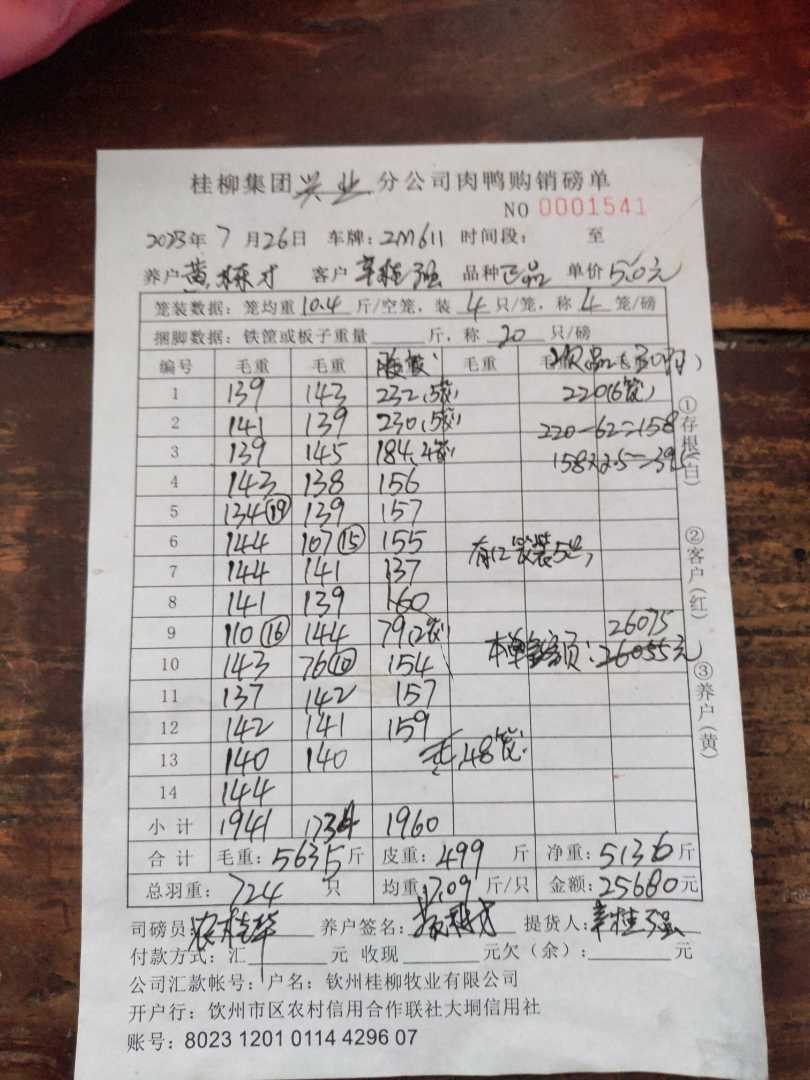 桂柳集团兴业分公司肉鸭购销磅单
NO 0001541
2023年7月26日 车牌:2M611 时间段: 至
养户 黄栋才 客户 辛桂强 品种 正品 单价 5.0元
笼装数据:笼均重10.4斤/空笼,装4只/笼,称4笼/磅
捆脚数据:铁筐或板子重量 斤,称20只/磅
编号 毛重 毛重 毛重 毛重
1 139 143 232(5笼) 220(6笼)
2 141 139 230(5笼) 220-62=158
3 139 145 184(4笼) 158×2.5=395
4 143 138 156
5 134⑲ 139 157
6 144 107⑮ 155
7 144 141 137
8 141 139 160
9 110⑯ 144 79(2笼) 26075
10 143 76⑩ 154 本单金额:26055元
11 137 142 157
12 142 141 159
13 140 140 共48笼
14 144
小计 1941 1734 1960
合计 毛重:5635斤 皮重:499斤 净重:5136斤
总羽重:724只 均重:7.09斤/只 金额:25680元
司磅员: 养户签名: 提货人:辛桂强
付款方式:汇 元 收现 元欠(余): 元
公司汇款帐号:户名:钦州桂柳牧业有限公司
开户行:钦州市区农村信用合作联社大垌信用社
账号:8023 1201 0114 4296 07
①存根(白)
②客户(红)
③养户(黄)